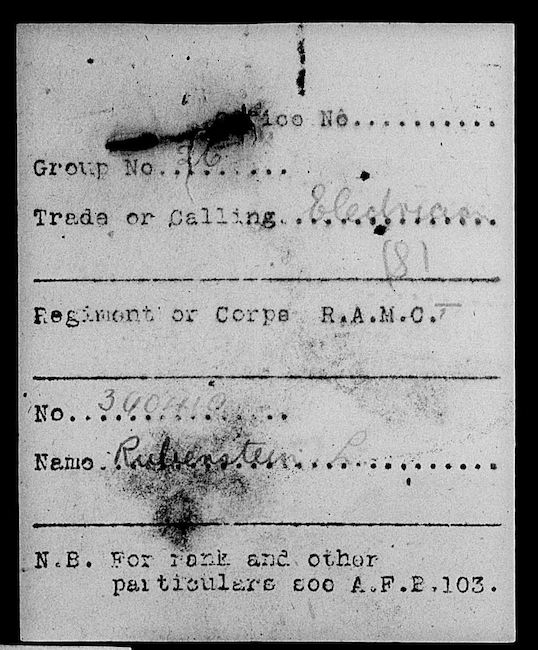 No..........
Group No. 26
Trade or Calling. Electrician
(8)
Regiment or Corps R.A.M.C.T
No.
Name. Rubenstein L
N.B. For rank and other
particulars see A.F.B.103.